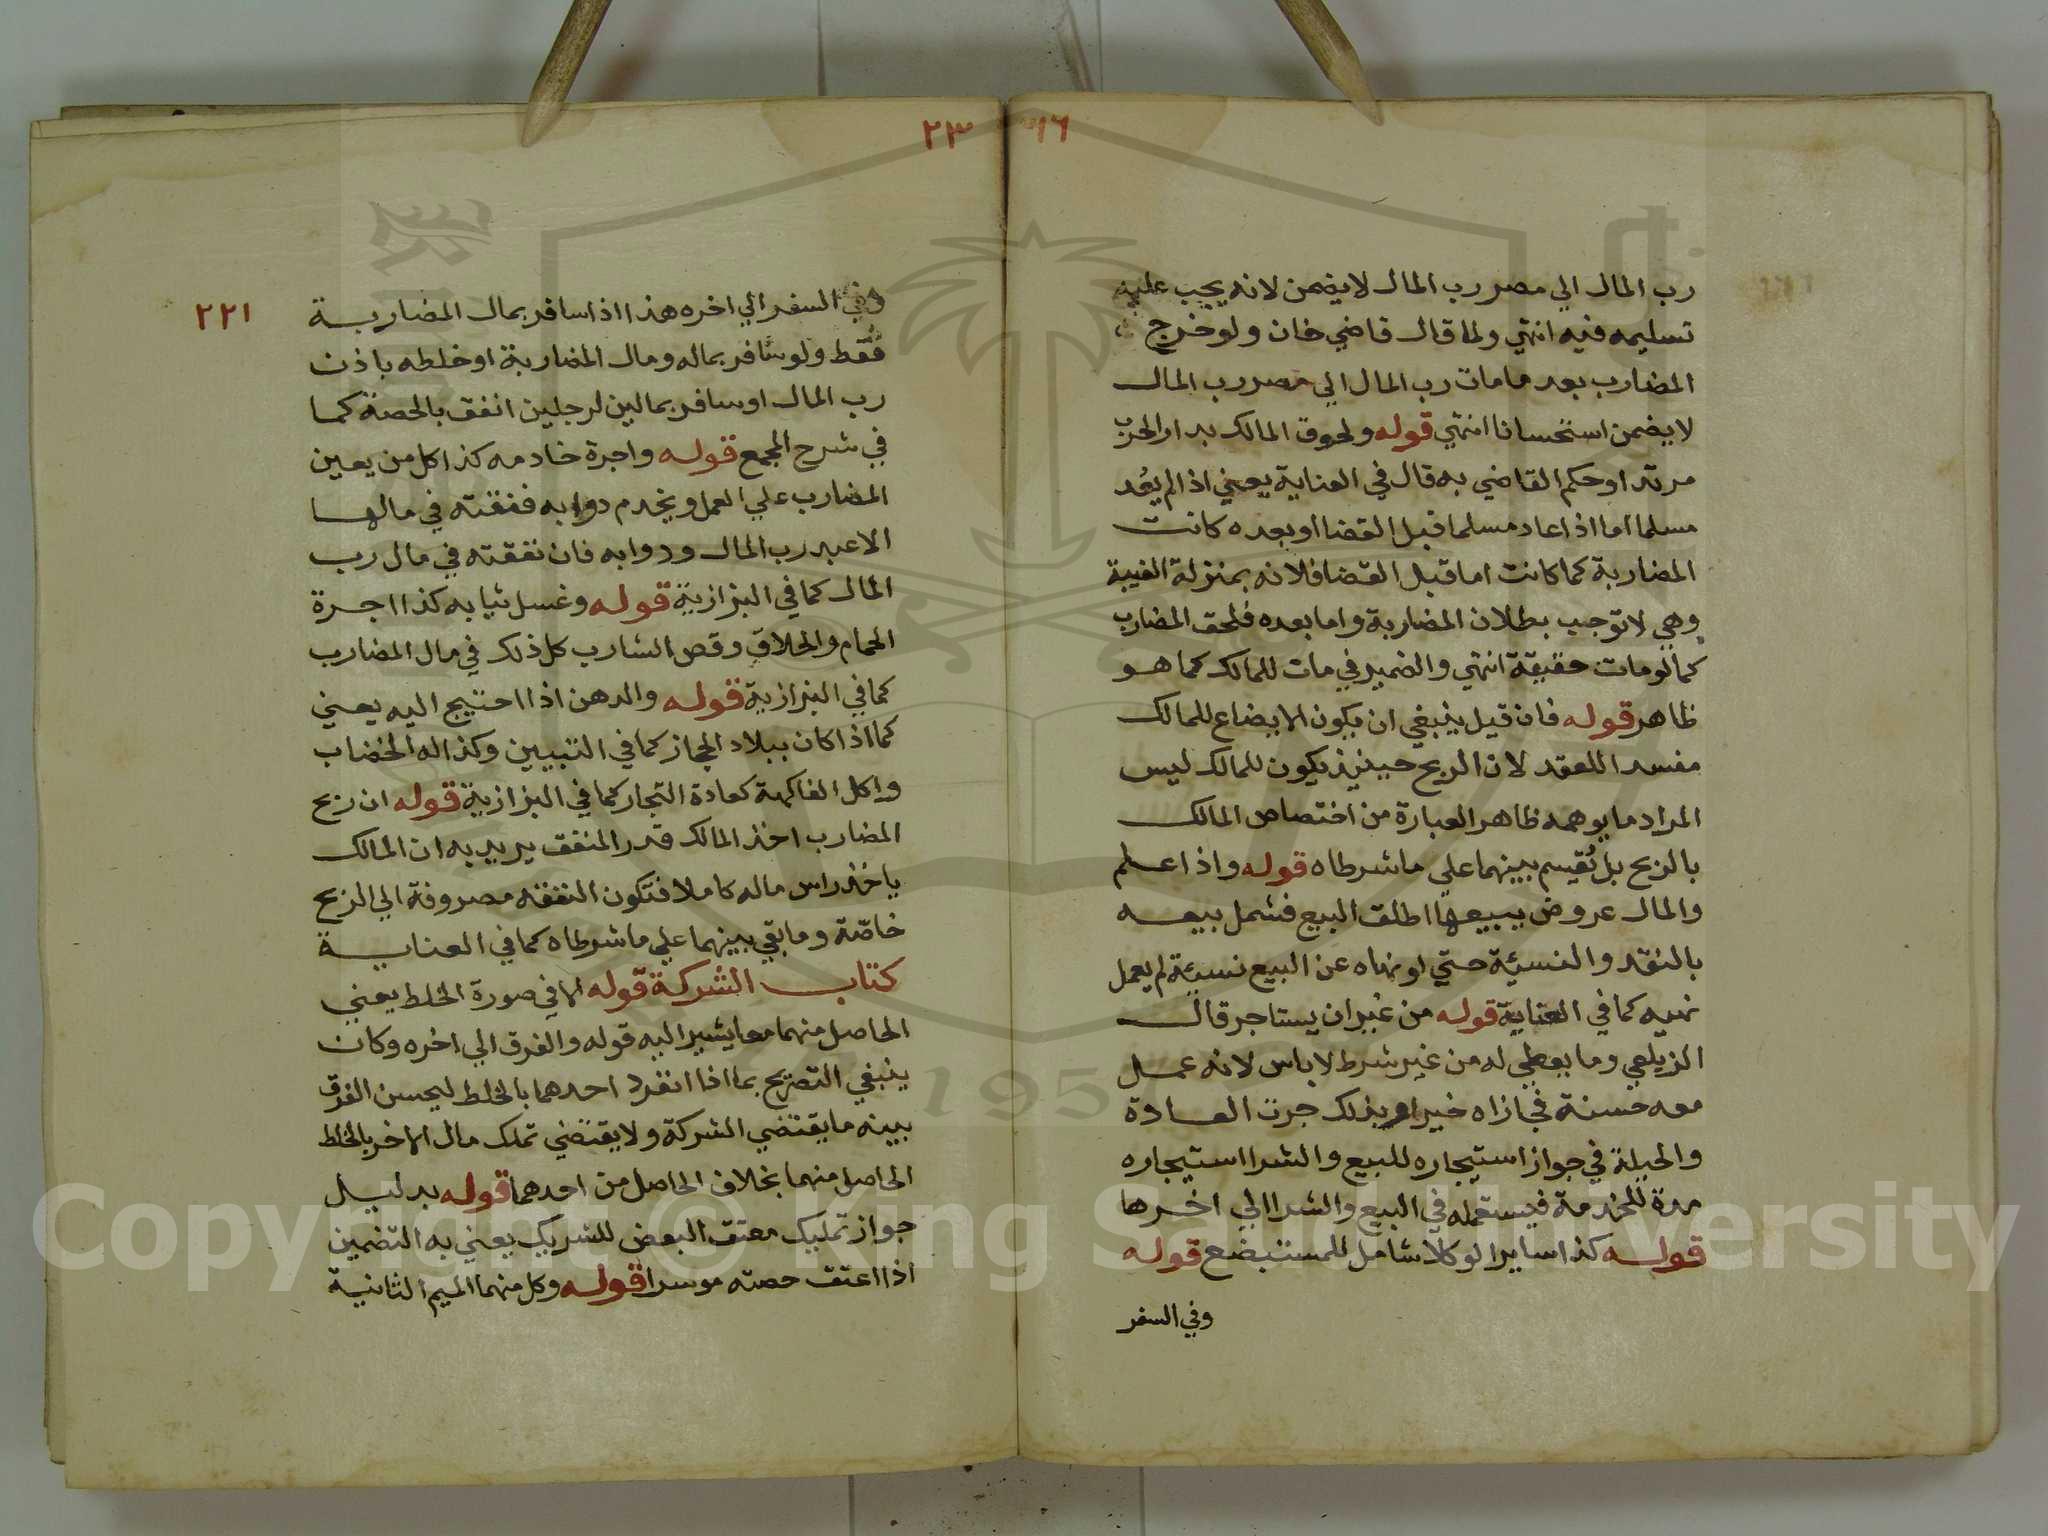 ١٦
رب المال الي مصر رب المال لا يضمن لانه يجب عليه
تسليمه فيه انتهي ولما قال قاضي خان ولو خرج
المضارب بعد ما مات رب المال الي مصر رب المال
لا يضمن استحسانا انتهي قوله ولحوق المالك بدار الحرب
مرتدا وحكم القاضي به قال في العناية يعني اذا لم يعُد
مسلما اما اذا عاد مسلما قبل القضا او بعده كانت
المضاربة كما كانت اما قبل القضا فلانه بمنزلة الغيبة
وهي لا توجب بطلان المضاربة واما بعده فلحق المضارب
كما لو مات حقيقة انتهي والضمير في مات للمالك كما هو
ظاهر قوله فان قيل ينبغي ان يكون الابضاع للمالك
مفسدا للعقد لان الربح حينيذ يكون للمالك ليس
المراد ما يوهمه ظاهر العبارة من اختصاص المالك
بالربح بل يُقيسم بينهما علي ما شرطاه قوله واذا علم
والمال عروض يبيعها اطلق البيع فشمل بيعه
بالنقد والنسيئة حتي لو نهاه عن البيع نسيئة لم يعمل
نهيه كما في العناية قوله من غير ان يستاجر قال
الزيلعي وما يعطي له من غير شرط لا باس لانه عمل
معه حسنة فجازاه خيرا وبذلك جرت العادة
والحيلة في جواز استيجاره للبيع والشرا استيجاره
مدة للخدمة فيستعمله في البيع والشرا الي اخرها
قوله كذا ساير الوكلا شامل للمستبضع قوله
وفي السفر
٢٣
٢٢١
وفي السفر الي اخره هذا اذا سافر بمال المضاربة
فقط ولو سافر بماله ومال المضاربة او خلطه باذن
رب المال او سافر بمالين لرجلين انفق بالحصة كما
في شرح المجمع قوله واجرة خادمه كذا كل من يعين
المضارب علي العمل ويخدم دوابه فنفقته في مالها
الا عبد رب المال ودوابه فان نفقته في مال رب
المال كما في البزازية قوله وغسل ثيابه كذا اجرة
الحمام والحلاق وقص الشارب كل ذلك في مال المضارب
كما في البزازية قوله والدهن اذا احتيج اليه يعني
كما اذا كان ببلاد الحجاز كما في التبيين وكذا له الخضاب
واكل الفاكهة كعادة التجار كما في البزازية قوله ان ربح
المضارب اخذ المالك قدر المنفق يريد به ان المالك
ياخذ راس ماله كاملا فتكون النفقة مصروفة الي الربح
خاصّة وما بقي بينهما علي ما شرطاه كما في العناية
كتاب الشركة قوله الا في صورة الخلط يعني
الحاصل منهما معا يشير اليه قوله والفرق الي اخره وكان
ينبغي التصريح بما اذا انفرد احدهما بالخلط ليحسن الفرق
بينه ما يقتضي الشركة ولا يقتضي تملك مال الاخر بالخلط
الحاصل منهما بخلاف الحاصل من احدهما قوله بدليل
جواز تمليك معتق البعض للشريك يعني به التضمين
اذا اعتق حصته موسرا قوله وكل منهما الميم الثانية
Copyright © King Saud University
1957